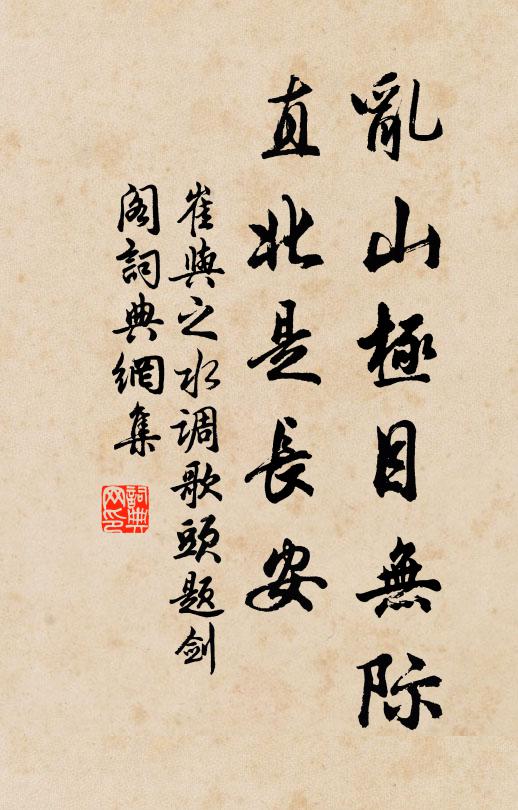 亂山極目無际
直北是長安
崔與之水调歌頭题剑
阁詞典網集
詞典
网印